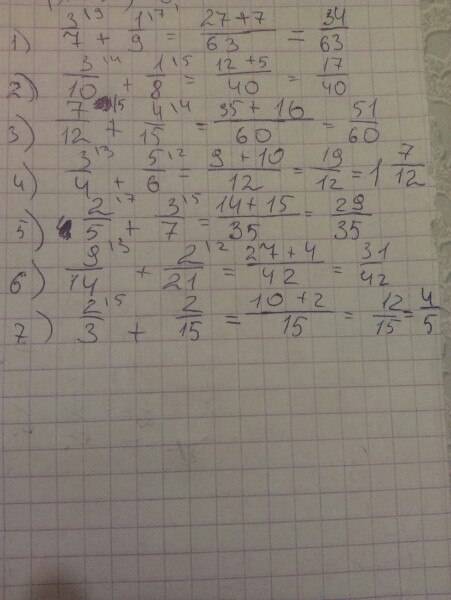 1) 3\9/7 + 1\7/9 = 27+7/63 = 34/63
2) 3\4/10 + 1\5/8 = 12+5/40 = 17/40
3) 7\5/12 + 4\4/15 = 35+16/60 = 51/60
4) 3\3/4 + 5\2/6 = 9+10/12 = 19/12 = 1 7/12
5) 2\7/5 + 3\5/7 = 14+15/35 = 29/35
6) 9\3/14 + 2\2/21 = 27+4/42 = 31/42
7) 2\5/3 + 2/15 = 10+2/15 = 12/15 = 4/5